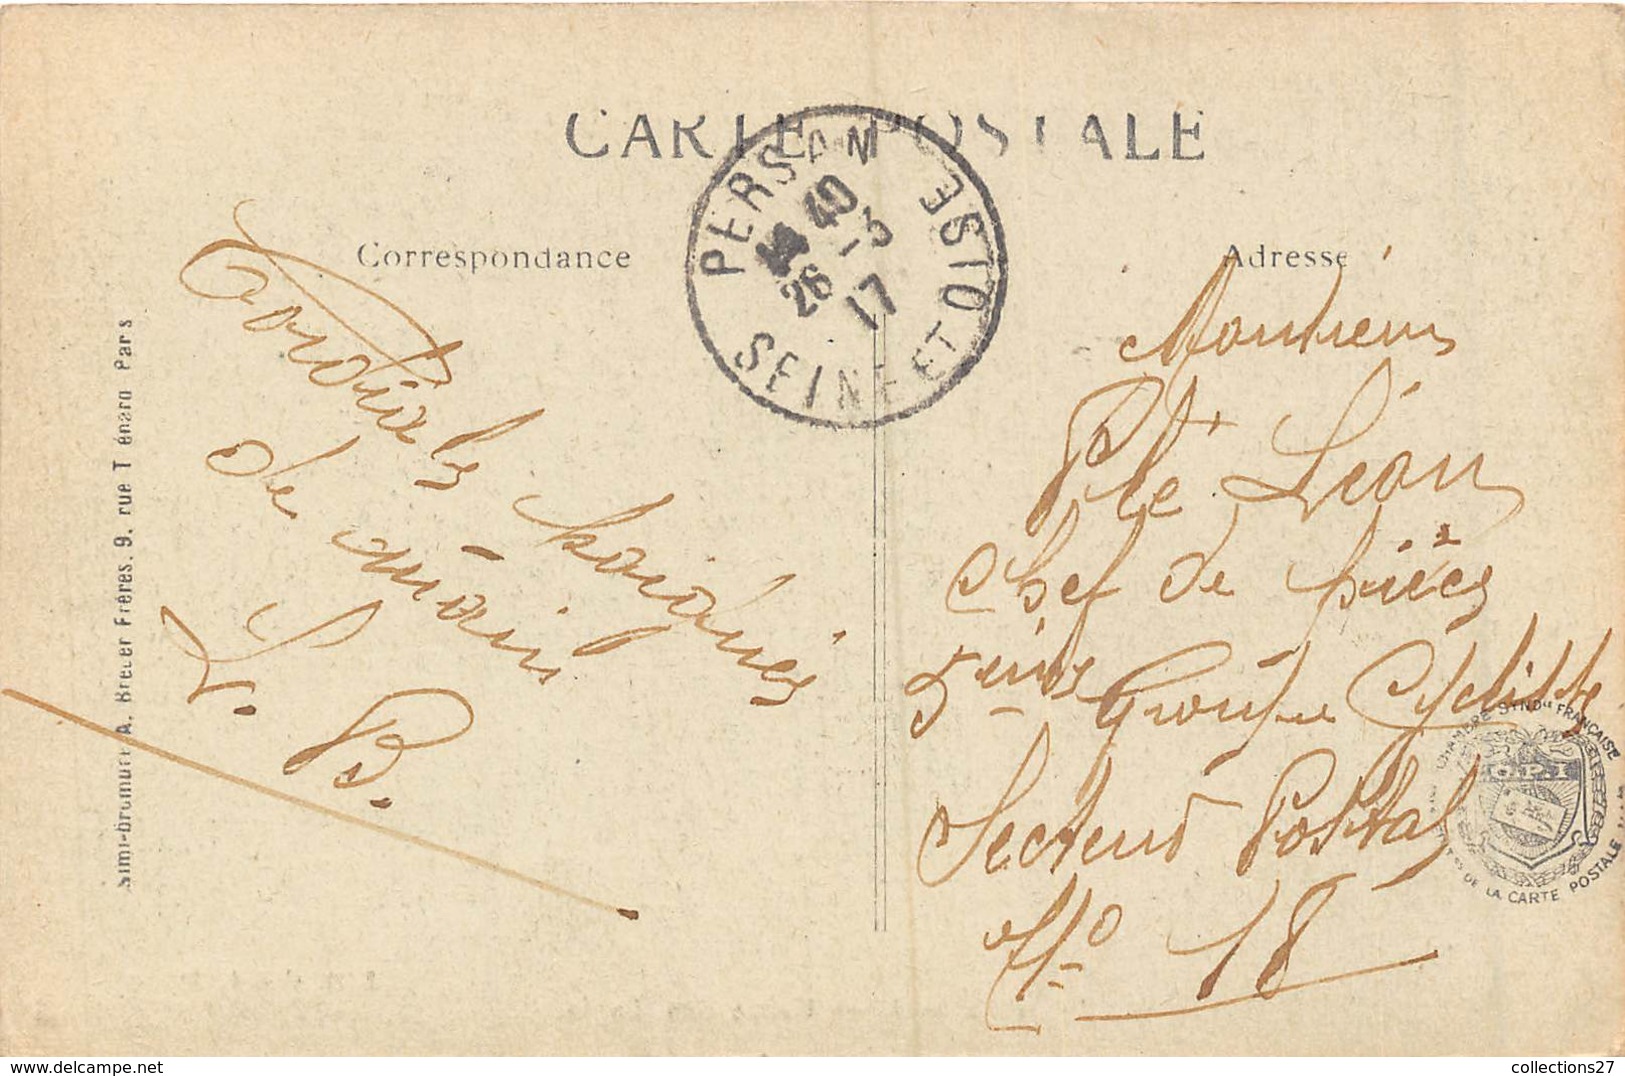 CARTE POSTALE
PERSAN
SEINE ET OISE
40
26 -3
17
Correspondance
Adresse
Cordiales poignées
de main
L. B.
Monsieur
Plé Léon
Chef de pièces
5eme Groupe Cycliste
Secteur Postal
No 18
A. Breger Frères. 9. rue Thénard Paris
CHAMBRE SYNDle FRANÇAISE
C.P.I
DE LA CARTE POSTALE
collections27